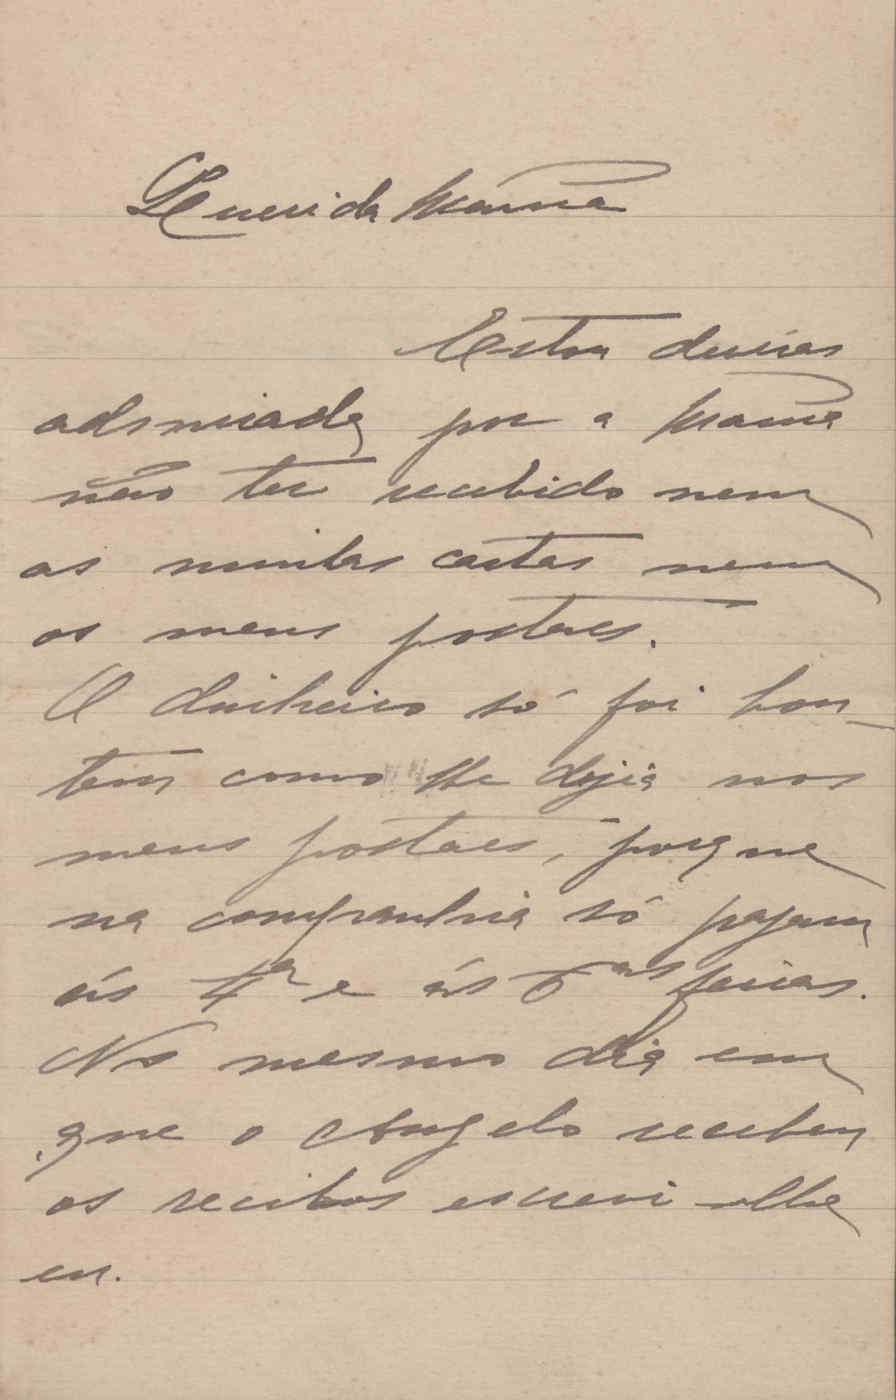 Querida Mamã
Estou deveras
admirada por a Mamã
não ter recebido nem
as minhas cartas nem
os meus postaes.
O dinheiro só foi hon-
tem como lhe dizia nos
meus postaes, porque
na companhia só pagam
ás 4as e ás 6as feiras.
No mesmo dia em
que o Angelo recebeu
os recibos escrevi-lhe
eu.